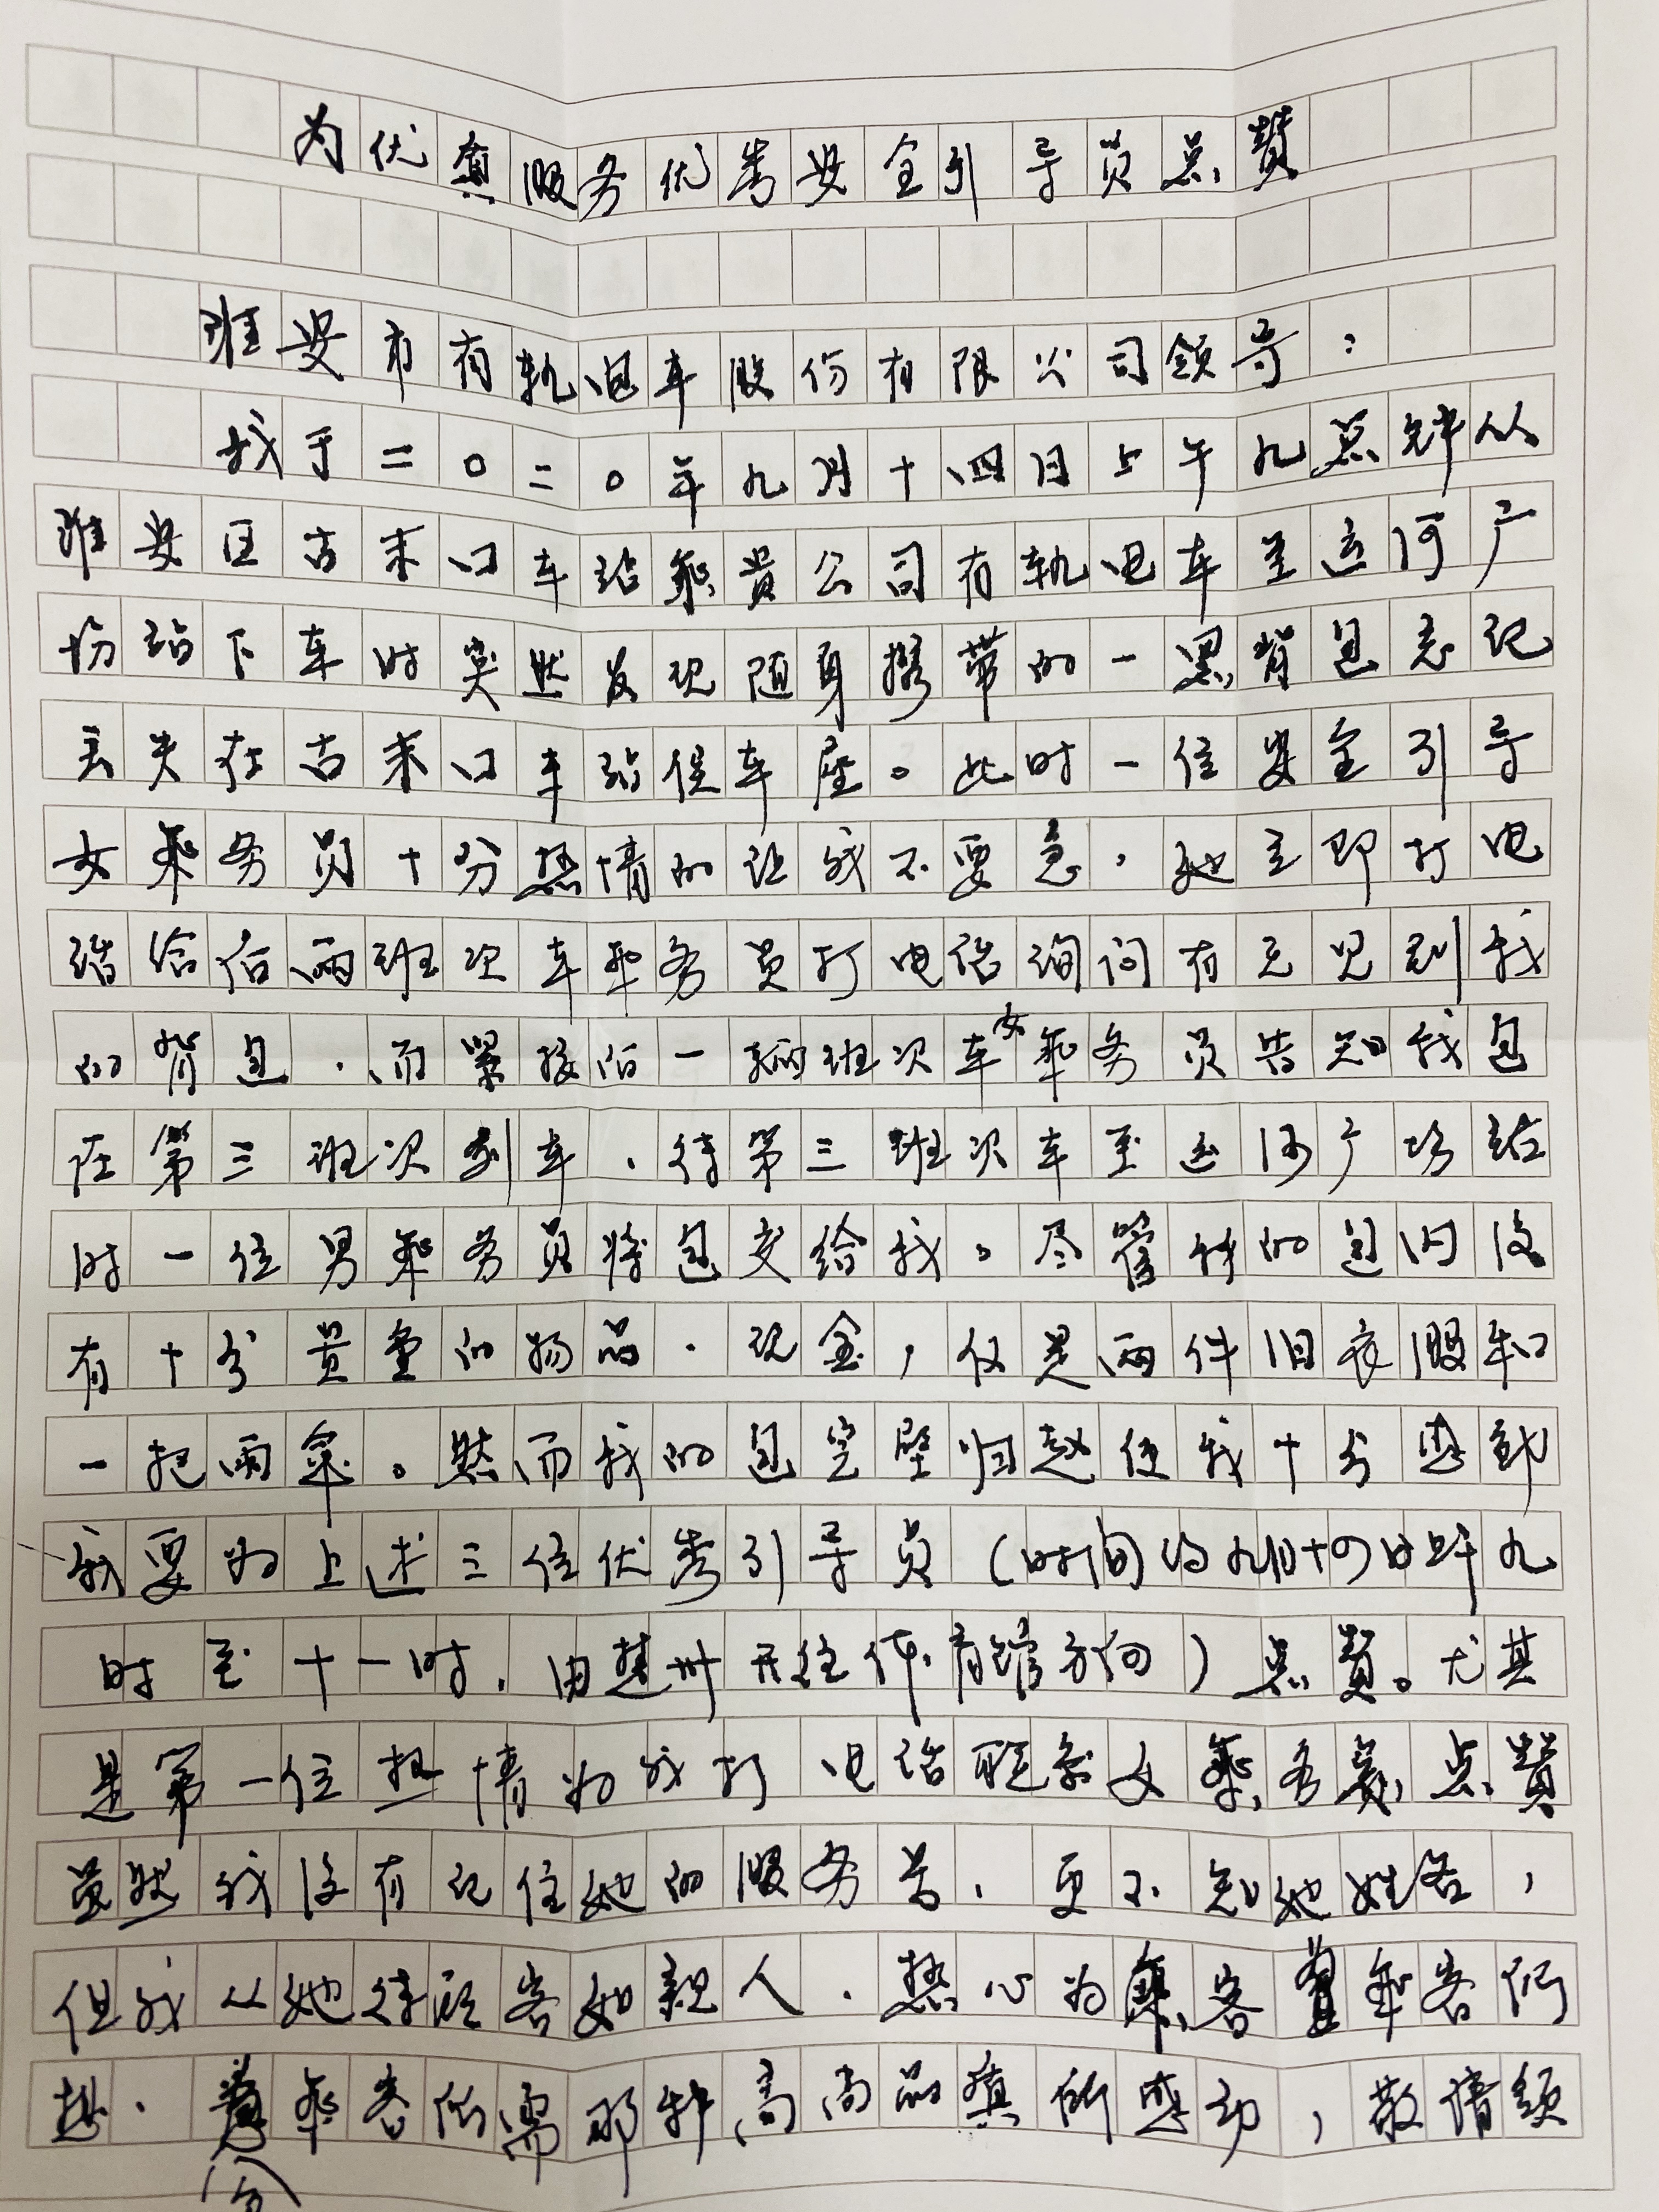 为优质服务优秀安全引导员点赞
淮安市有轨电车股份有限公司领导：
我于二0二0年九月十四日上午九点钟从
淮安区古末口车站乘贵公司有轨电车至运河广
场站下车时突然发现随身携带的一黑背包忘记
丢失在古末口车站候车座。此时一位安全引导
女乘务员十分热情的让我不要急，她立即打电
话给后两班次车乘务员打电话询问有无见到我
的背包、而紧接后一辆班次车女乘务员告知我包
在第三班次列车、待第三班次车至运河广场站
时一位男乘务员将包交给我。尽管我的包内没
有十分贵重的物品、现金，仅是两件旧衣服和
一把雨伞。然而我的包完壁归赵使我十分感动
我要为上述三位优秀引导员（时间为九月十四日上午九
时至十一时、由楚州开往体育馆方向）点赞。尤其
是第一位热情为我打电话联系女乘务员点赞
虽然我没有记住她的服务号、更不知她姓名，
但我从她待旅客如亲人、热心为乘客着乘客所
想、急乘客所需那种高尚品质所感动，敬请领